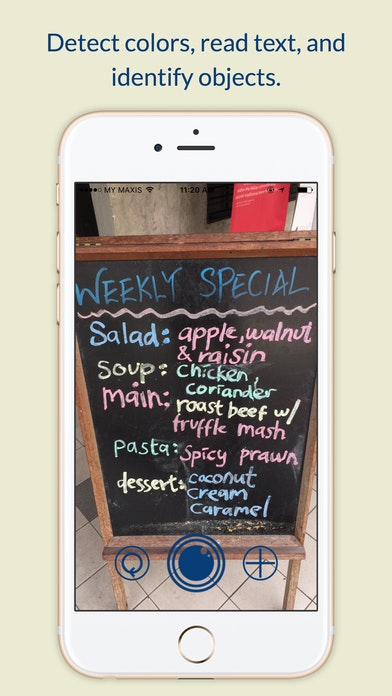 Detect colors, read text, and
identify objects.
MY MAXIS
11:20 AM
WEEKLY SPECIAL
Salad: apple, walnut
& raisin
Soup: Chicken,
Coriander
main: roast beef w/
truffle mash
Pasta: Spicy prawn
dessert: coconut
cream
caramel